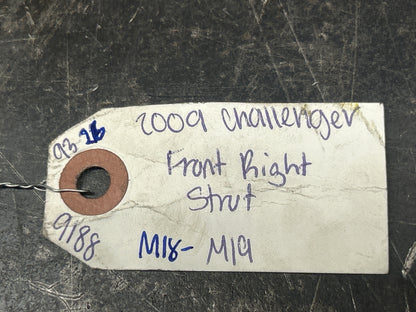 2009 Challenger
93 96
Front Right
Strut
9188
M18- M19